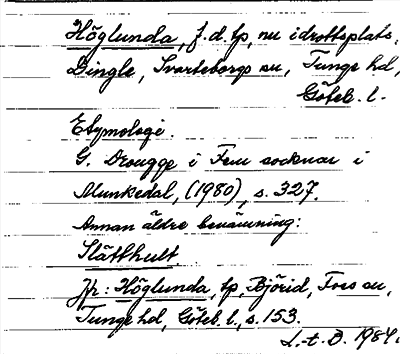 Höglunda, f.d. tp, nu idrottsplats,
Dingle, Svarteborgs sn, Tunge hd,
Göteb. l.
Etymologi.
G. Drougge i Fem socknar i
Munkedal, (1980), s. 327.
Annan äldre benämning:
Slätthult.
Jfr: Höglunda, tp, Björid, Foss sn,
Tunge hd, Göteb. l., s. 153.
L.-t. D. 1984.